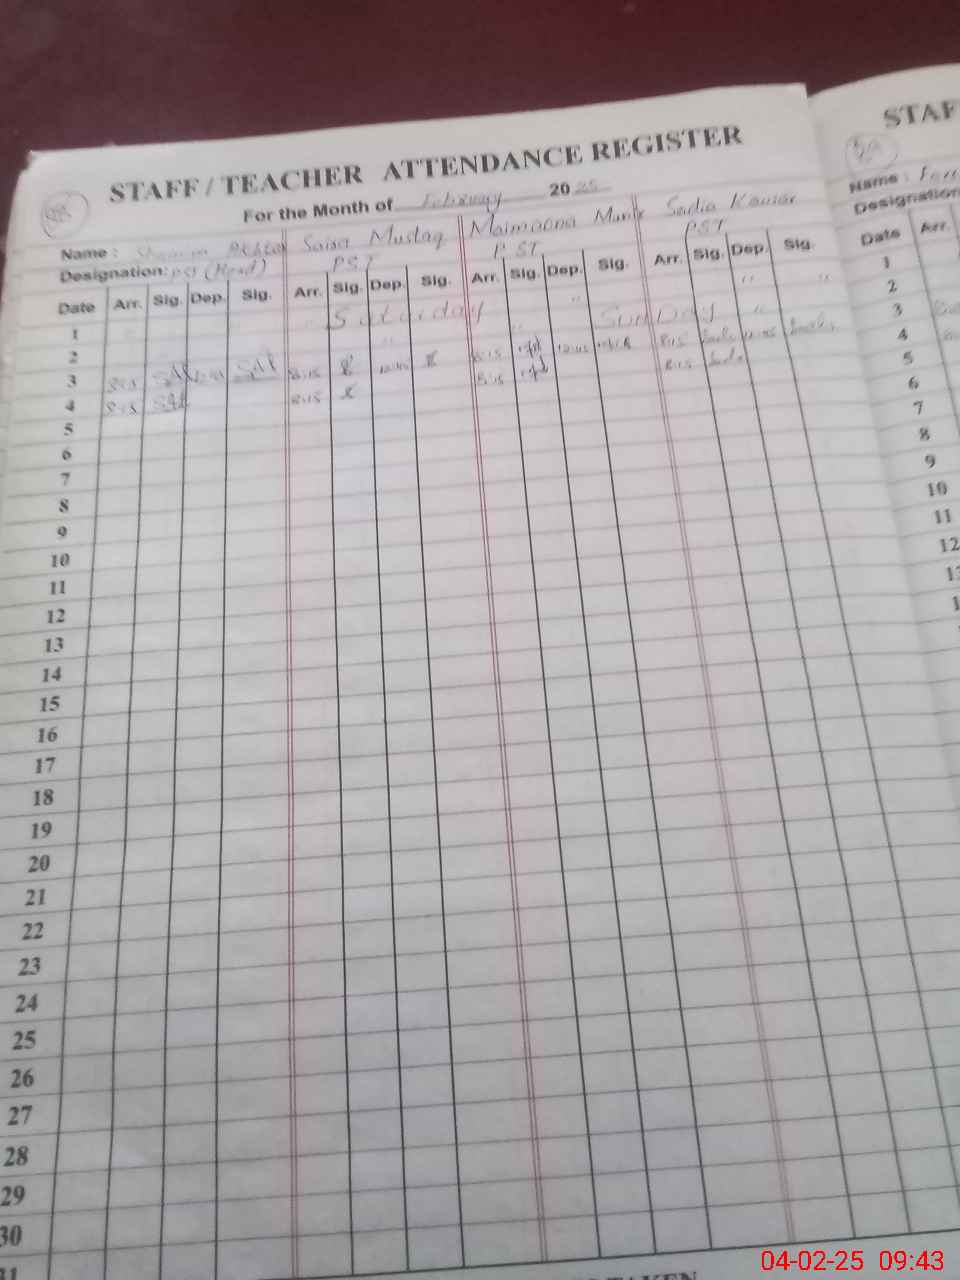 STAFF / TEACHER ATTENDANCE REGISTER
STAF
For the Month of February 2025
Name : Akhtar Saira Mustaq Maimoona Munir Sadia Kausar
Name :
Designation: PST (Head) PST PST PST
Designation
Date Arr. Sig. Dep. Sig. Arr. Sig. Dep. Sig. Arr. Sig. Dep. Sig. Arr. Sig. Dep. Sig.
Date Arr.
1 Saturday " " "
2 " " SunDay "
3 8:15 8:15 8:15 8:15
4 8:15 8:15 8:15 8:15
5
6
7
8
9
10
11
12
13
14
15
16
17
18
19
20
21
22
23
24
25
26
27
28
29
30
31
1
2
3
4
5
6
7
8
9
10
11
12
04-02-25 09:43